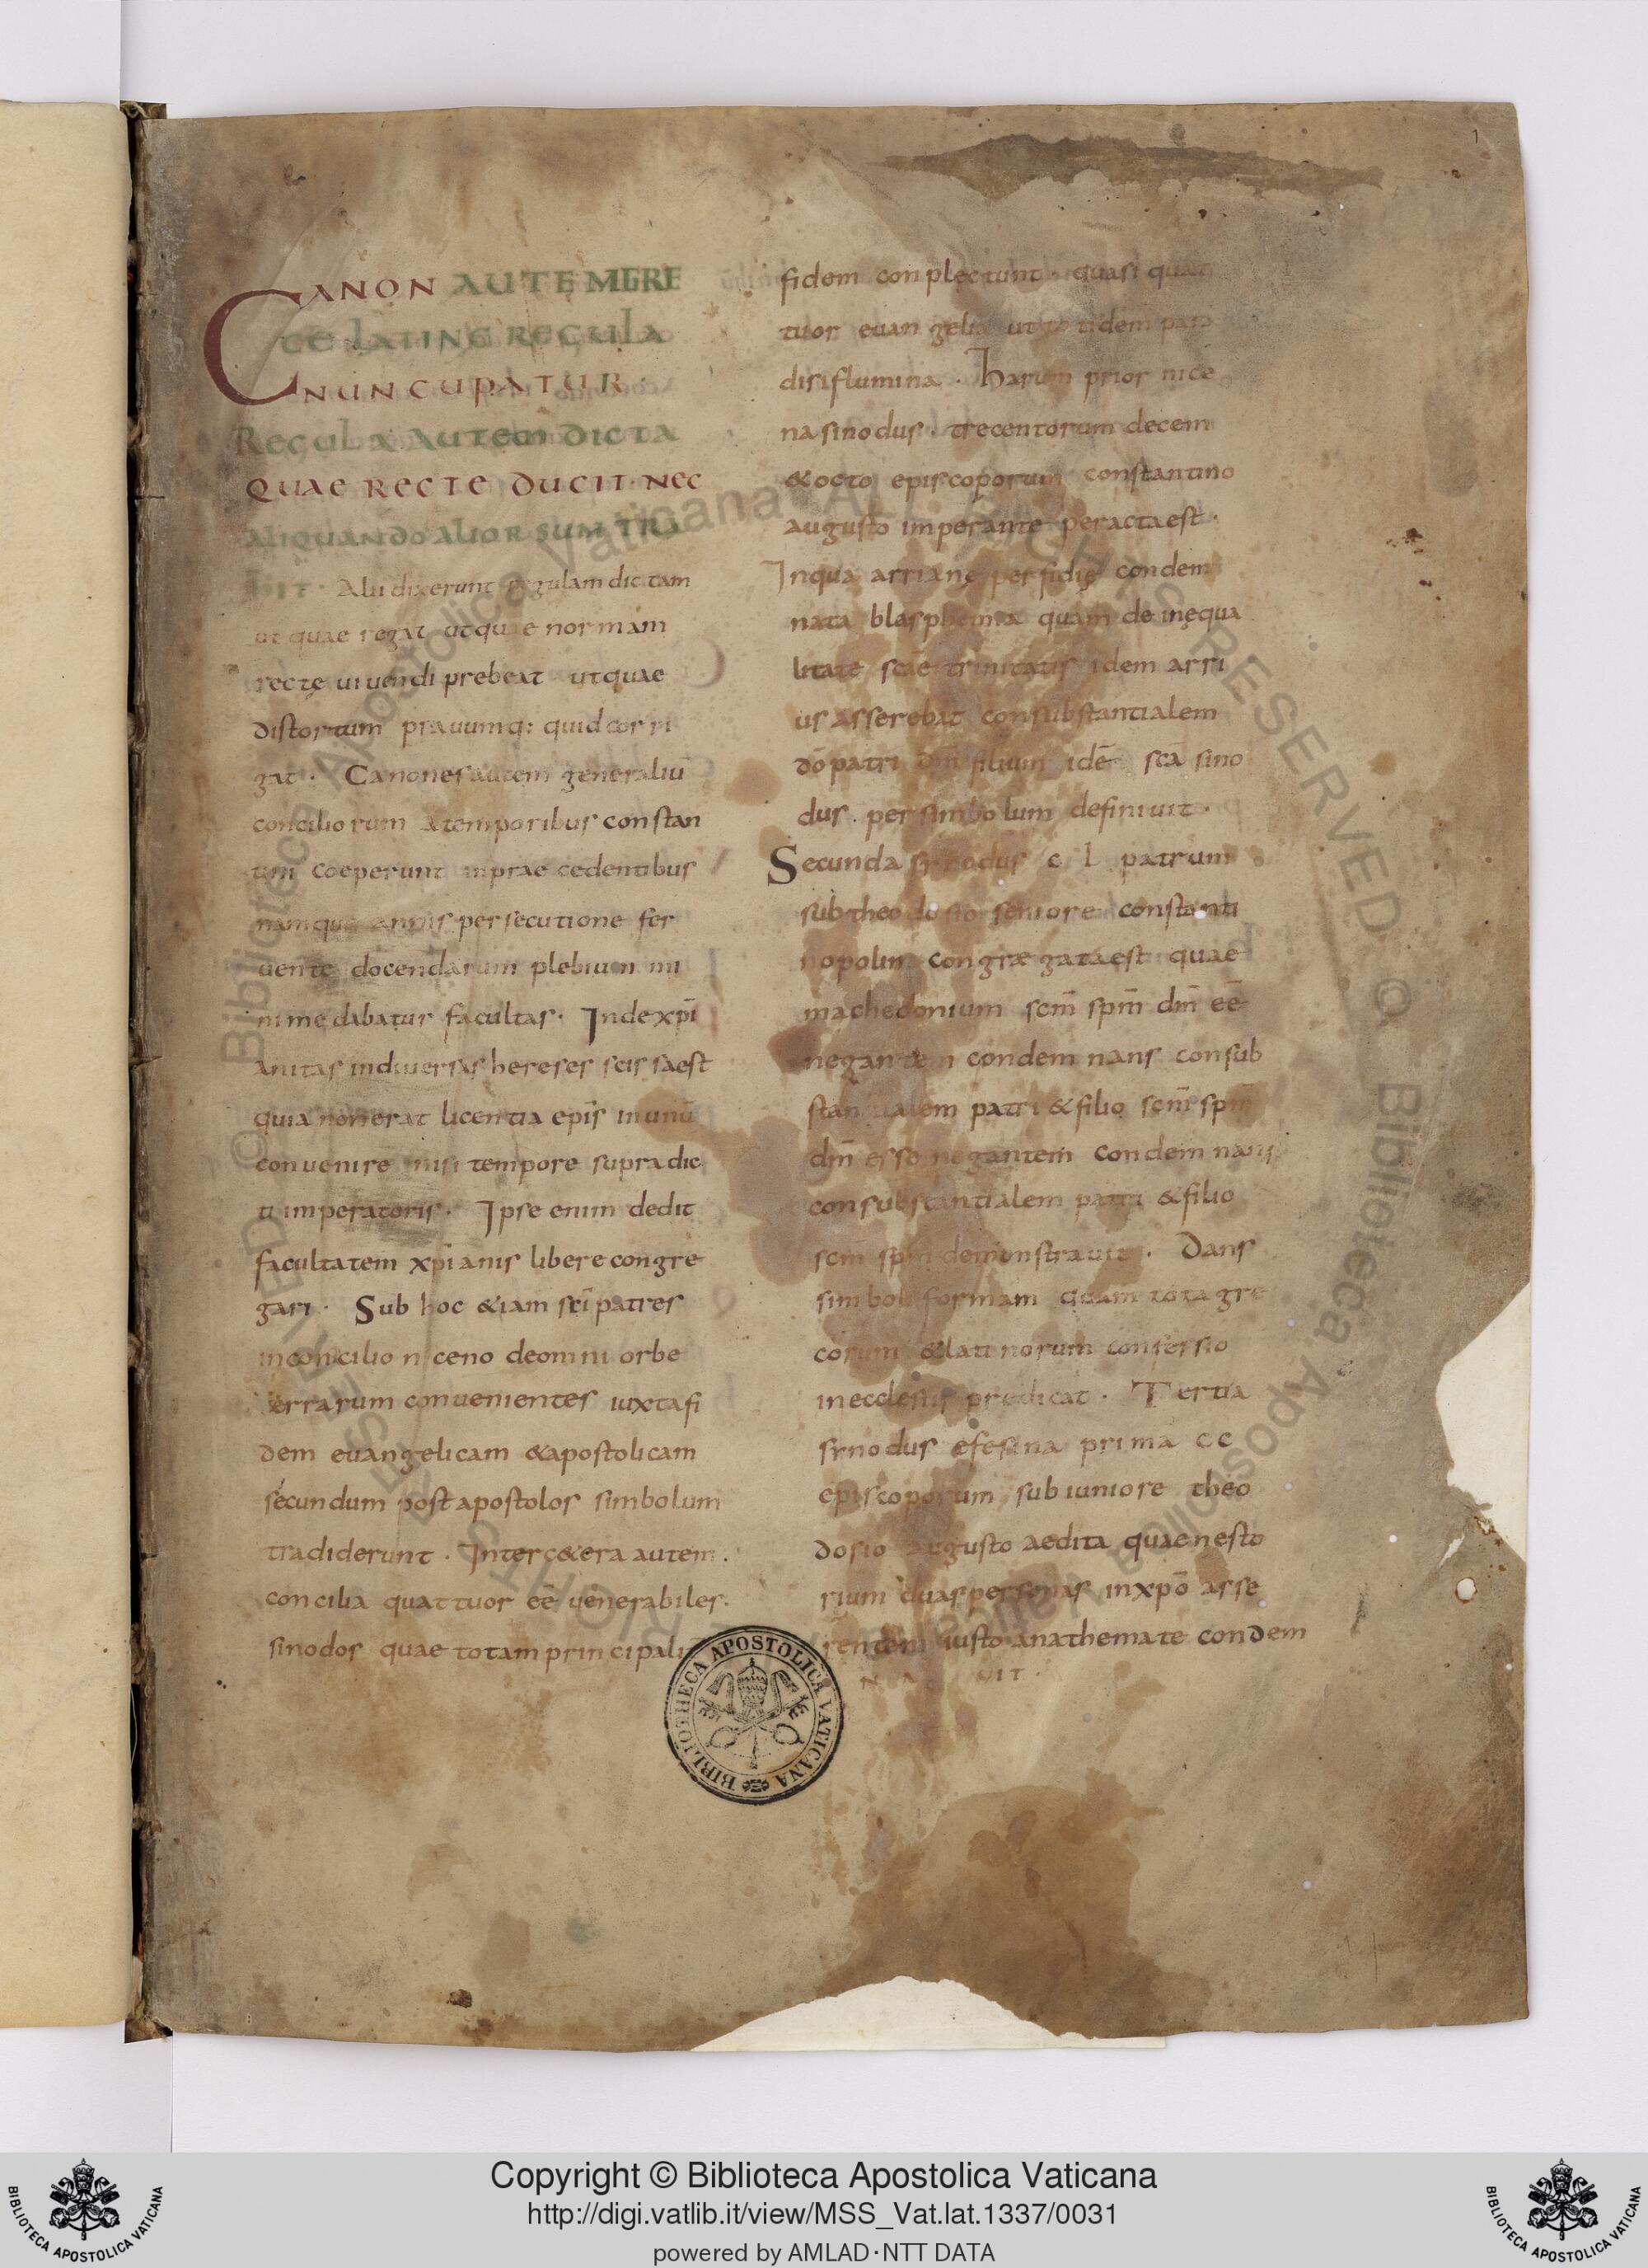 CANON AUTEM GRE
CE LATINE REGULA
NUNCUPATUR ·
REGULA AUTEM DICTA
QUAE RECTE DUCIT · NEC
ALIQUANDO ALIORSUM TRA
HIT · Alii dixerunt regulam dictam
ut quae regat utquae normam
recte uiuendi prebeat utquae
distortum prauumq: quid corri
gat · Canones autem generaliū
conciliorum a temporibus constan
tini coeperunt in prae cedentibus
namque annis persecutione fer
uente docendarum plebium mi
nime dabatur facultas · Inde xpi
anitas indiuersas hereses scissa est
quia non erat licentia epis inunū
conuenire nisi tempore supradic
ti imperatoris · Ipse enim dedit
facultatem xpianis libere congre
gari · Sub hoc &iam sci patres
inconcilio niceno de omni orbe
terrarum conuenientes iuxta fi
dem euangelicam & apostolicam
secundum post apostolos simbolum
tradiderunt · Inter c&era autem ·
concilia quattuor eē uenerabiles ·
sinodos quae totam principali
fidem conplectunt · quasi quat
tuor euangelia ut totidem para
disi flumina · harum prior nice
na sinodus · trecentorum decem
& octo episcoporum constantino
augusto imperante peracta est ·
Inqua arriane perfidie condem
nata blasphemia quam de inequa
litate scāe trinitatis idem arri
us asserebat consubstantialem
dō patri dm filium idē scā sino
dus per simbolum definiuit ·
Secunda sinodus c l patrum
sub theodosio seniore constanti
nopolin congregata est quae
machedonium scm̄ spm̄ dm̄ eē
negantem condemnans consub
stantialem patri & filio scm̄ spm̄
dm̄ esse negantem condemnans
consubstantialem patri & filio
scm̄ spm̄ demonstrauit · Dans
simboli formam quam tota gre
corum & latinorum confessio
in ecclesiis predicat · Tertia
synodus efesina prima cc
episcoporum sub iuniore theo
dosio augusto aedita quae nesto
rium duas personas in xpō asse
rentem iusto anathemate condem
NAUIT ·
1
BIBLIOTHECA APOSTOLICA VATICANA
© Biblioteca Apostolica Vaticana · ALL RIGHTS RESERVED © Biblioteca Apostolica Vaticana · ALL RIGHTS RESERVED
Copyright © Biblioteca Apostolica Vaticana
http://digi.vatlib.it/view/MSS_Vat.lat.1337/0031
powered by AMLAD·NTT DATA
BIBLIOTECA APOSTOLICA VATICANA
BIBLIOTECA APOSTOLICA VATICANA